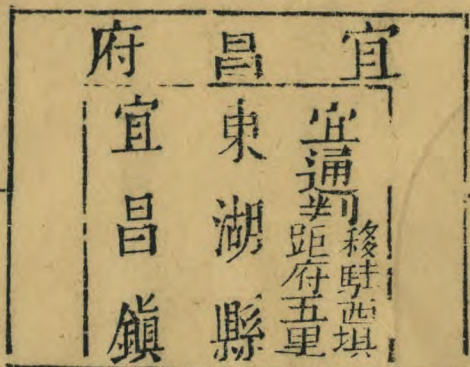 宜昌府
宜通判
移駐西壩
距府五里
東湖縣
宜昌鎮